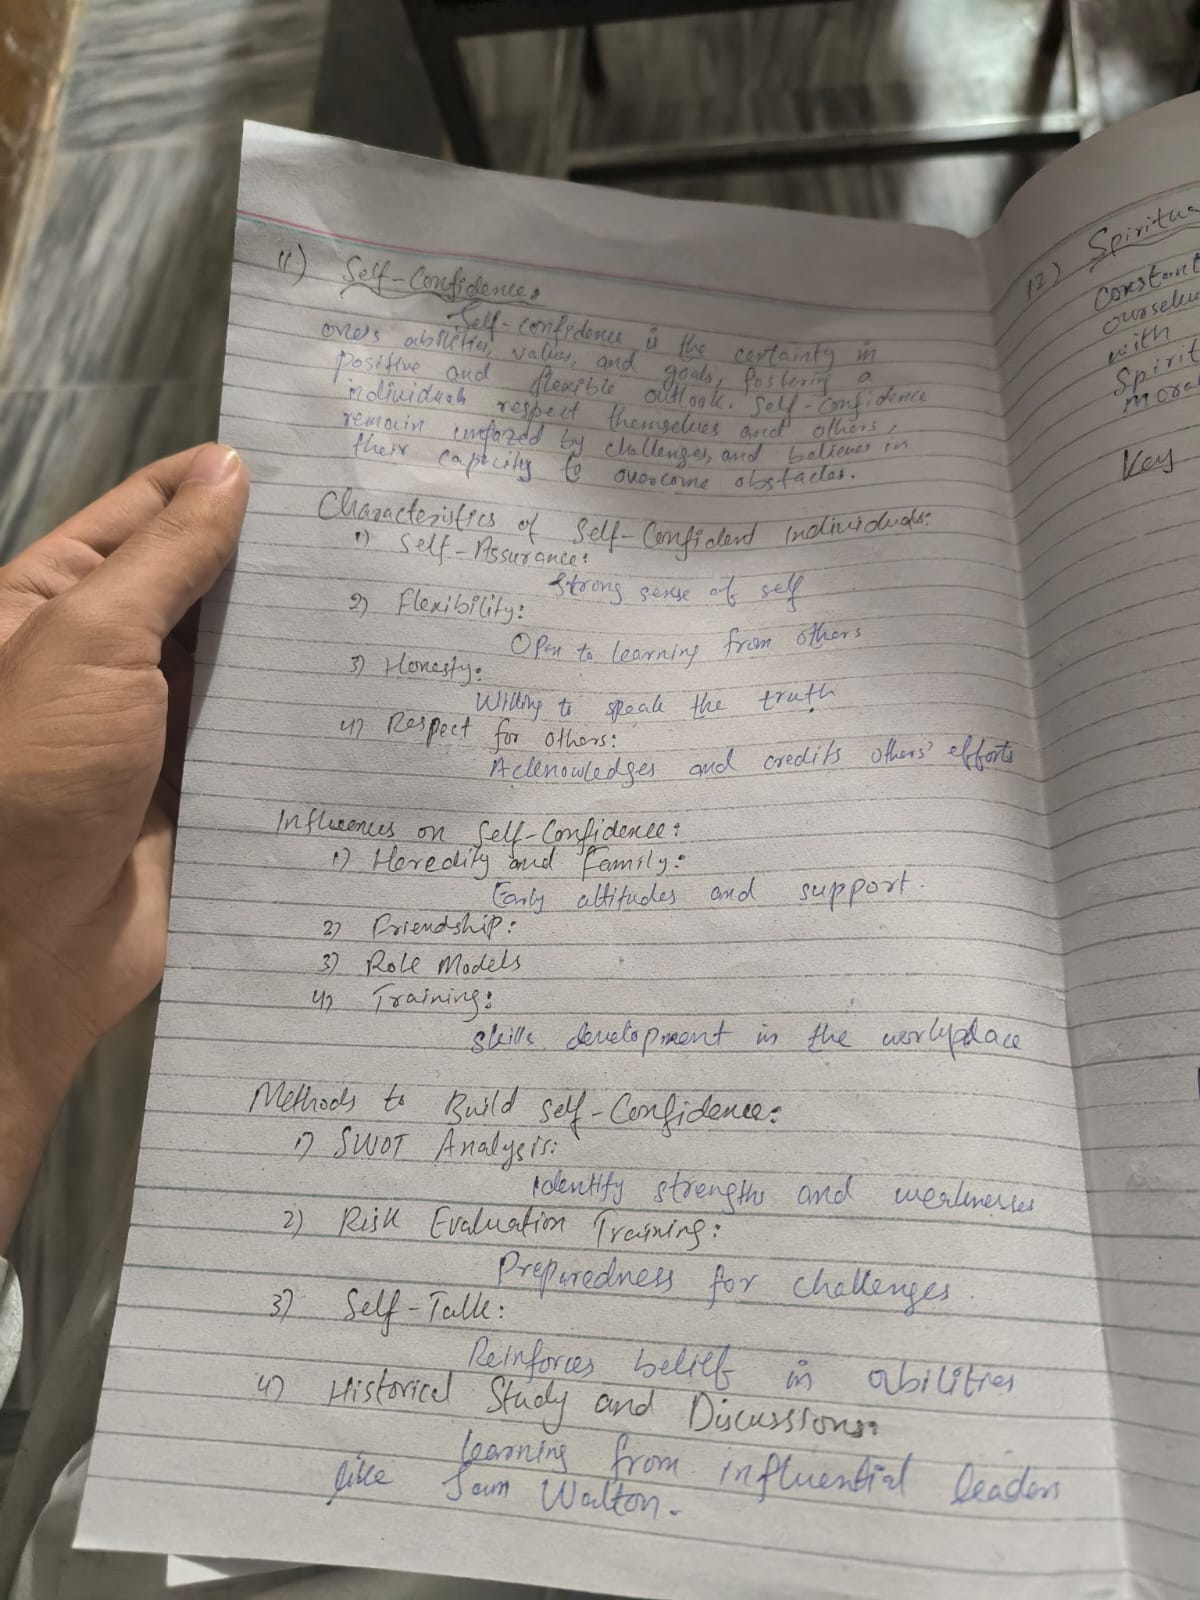 11) Self-Confidence:
Self-confidence is the certainty in
one's abilities, values, and goals, fostering a
positive and flexible outlook. Self-confidence
individuals respect themselves and others,
remain unfazed by challenges, and believes in
their capacity to overcome obstacles.
Characteristics of Self-Confident Individuals:
1) Self-Assurance:
Strong sense of self
2) Flexibility:
Open to learning from others
3) Honesty:
Willing to speak the truth
4) Respect for others:
Acknowledges and credits others' efforts
Influences on Self-Confidence:
1) Heredity and Family:
Early attitudes and support.
2) Friendship:
3) Role Models
4) Training:
skills development in the workplace
Methods to Build Self-Confidence:
1) SWOT Analysis:
identify strengths and weaknesses
2) Risk Evaluation Training:
Preparedness for challenges.
3) Self-Talk:
Reinforces belief in abilities
4) Historical Study and Discussions:
learning from influential leaders
like Sam Walton.
12) Spiritua
Constant
ourselve
with
Spirit
moral
Key